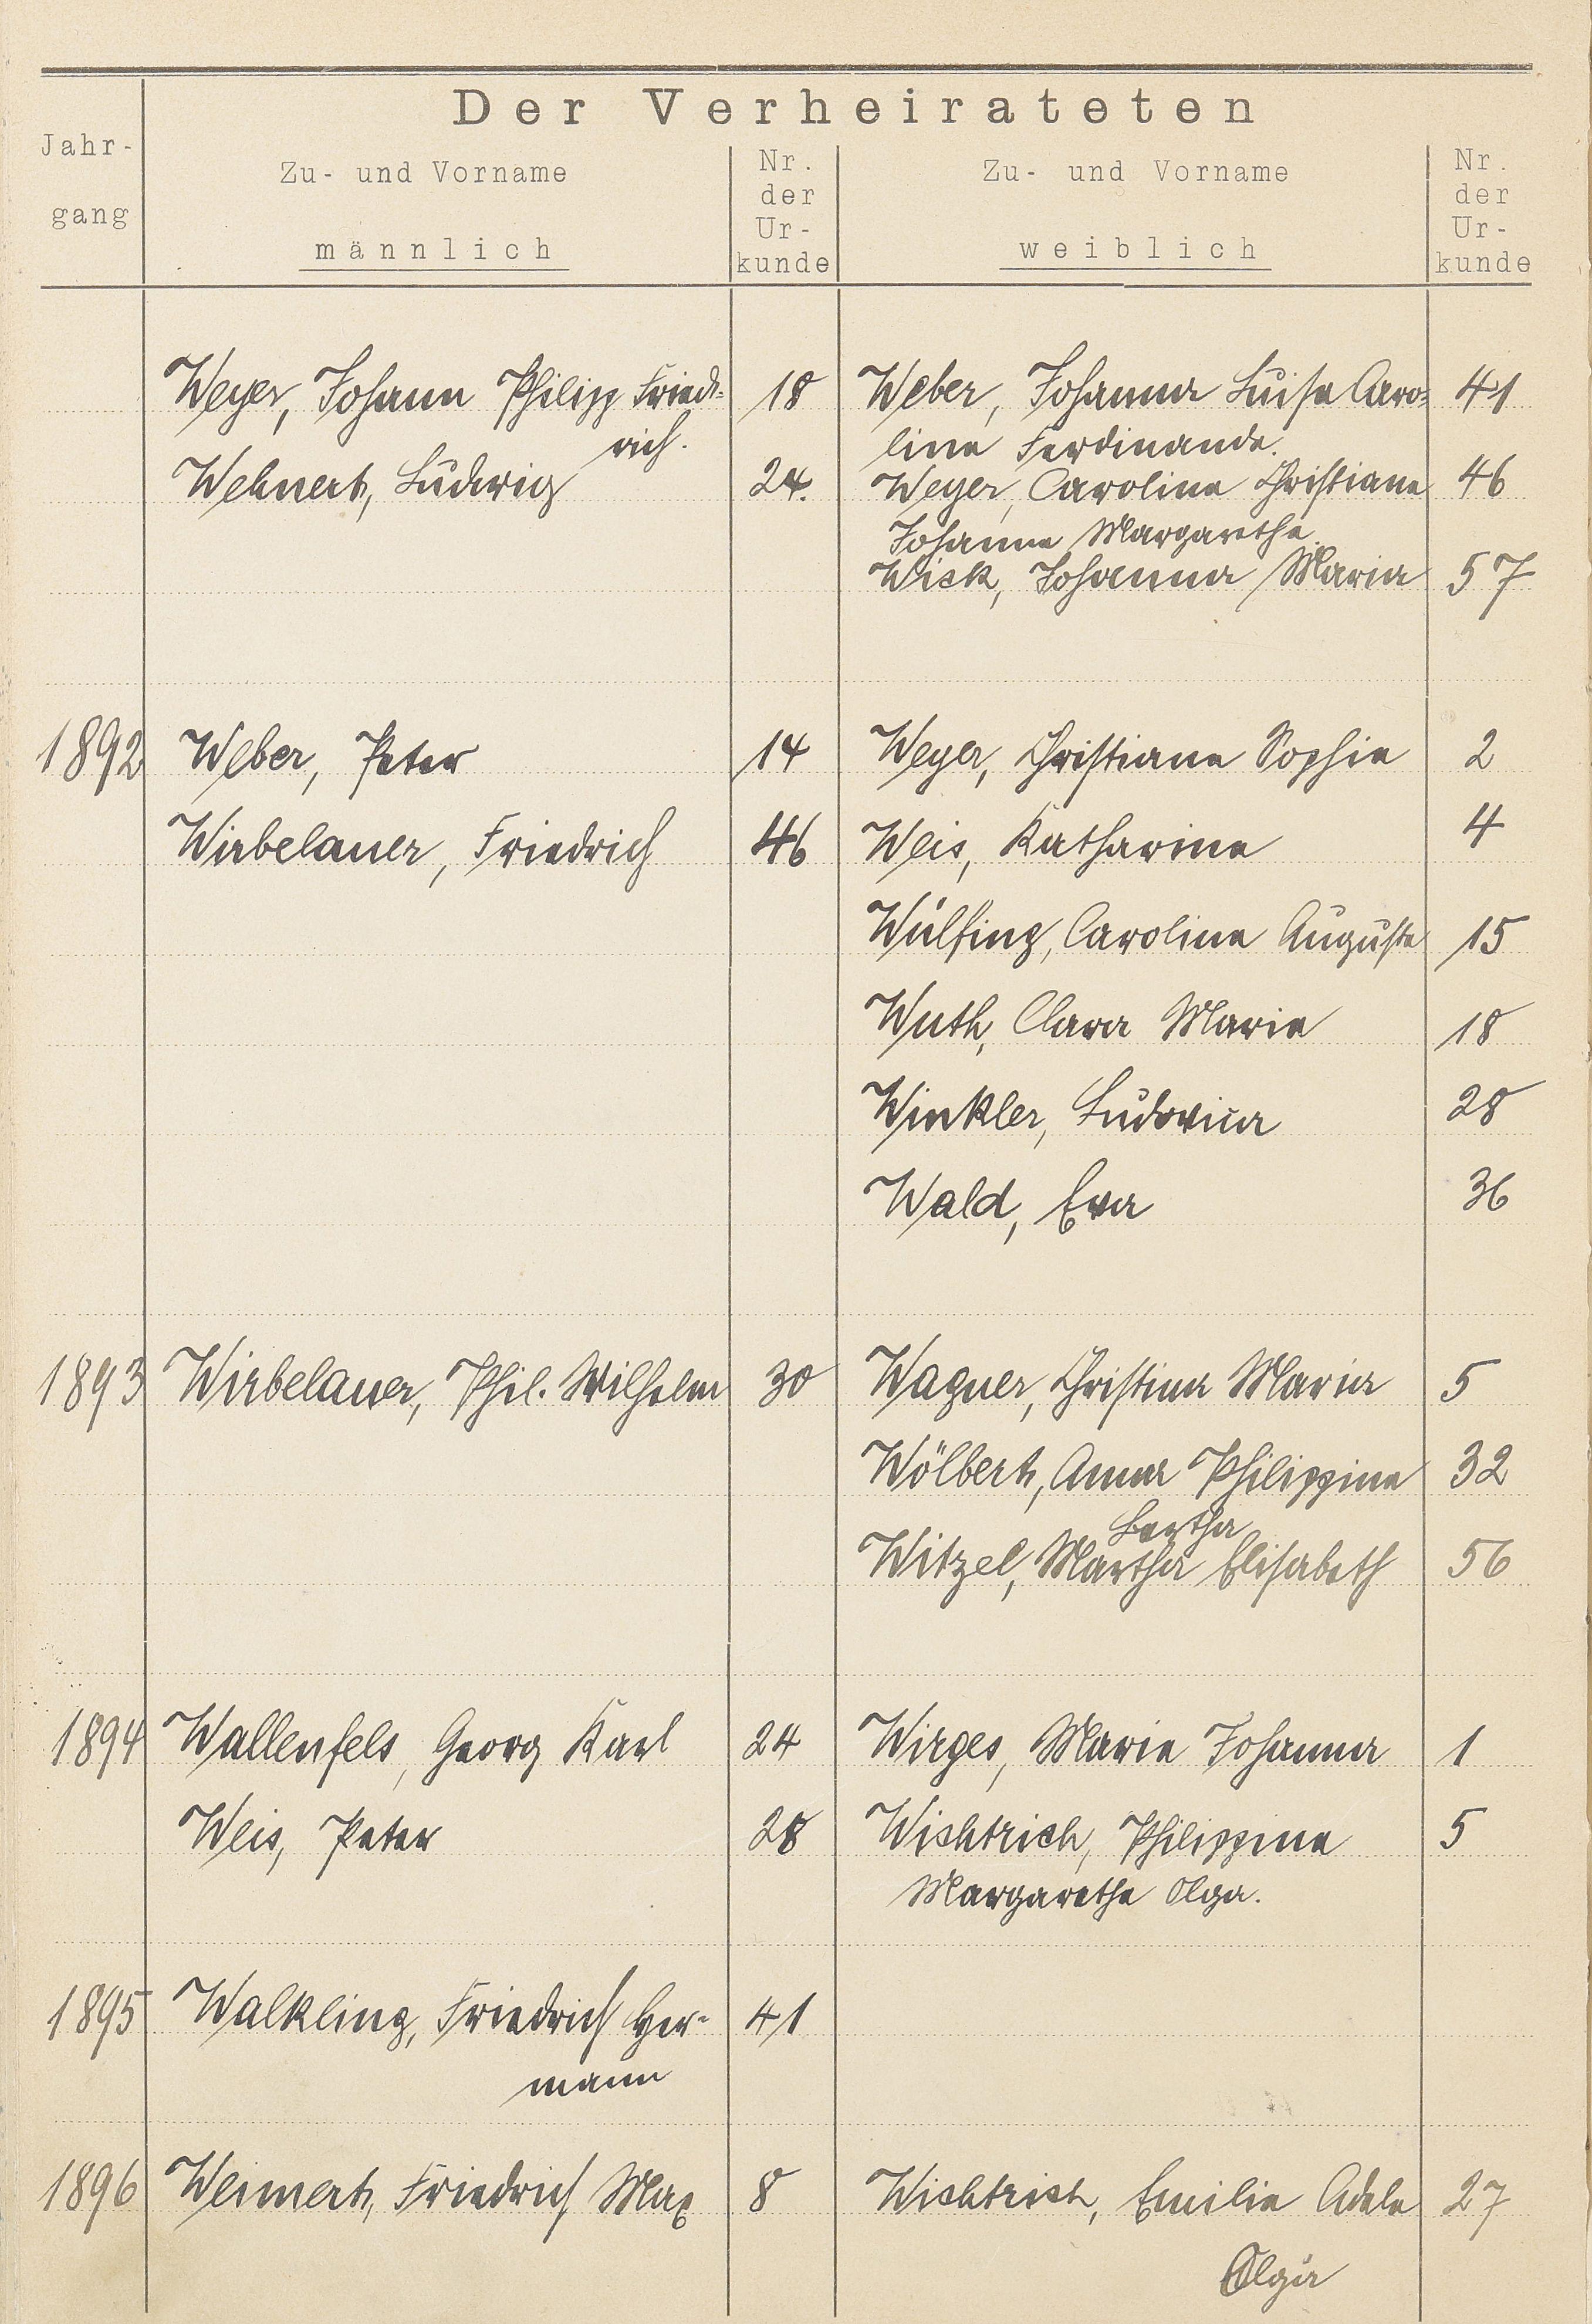 Der Verheirateten
Jahr-
gang
Zu- und Vorname
männlich
Nr.
der
Ur-
kunde
Zu- und Vorname
weiblich
Nr.
der
Ur-
kunde
Weyer, Johann Philipp Fried- 18 Weber, Johanna Luise Caro- 41
rich. line Ferdinande.
Wehnert, Ludwig 24. Weyer, Caroline Christiane 46
Johanne Margarethe.
Wick, Johanna Maria 57
1892 Weber, Peter 14 Weyer, Christiane Sophie 2
Wirbelauer, Friedrich 46 Weis, Katharine 4
Wülfing, Caroline Auguste 15
Wuth, Clara Marie 18
Winkler, Ludovica 28
Wald, Eva 36
1893 Wirbelauer, Phil. Wilhelm 30 Wagner, Christina Maria 5
Wölbert, Anna Philippine 32
Bertha
Witzel, Martha Elisabeth 56
1894 Wallenfels, Georg Karl 24 Wirges, Marie Johanna 1
Weis, Peter 28 Wichtrich, Philippine 5
Margarethe Olga.
1895 Walkling, Friedrich Her- 41
mann
1896 Weimert, Friedrich Max 8 Wichtrich, Emilie Adele 27
Olga